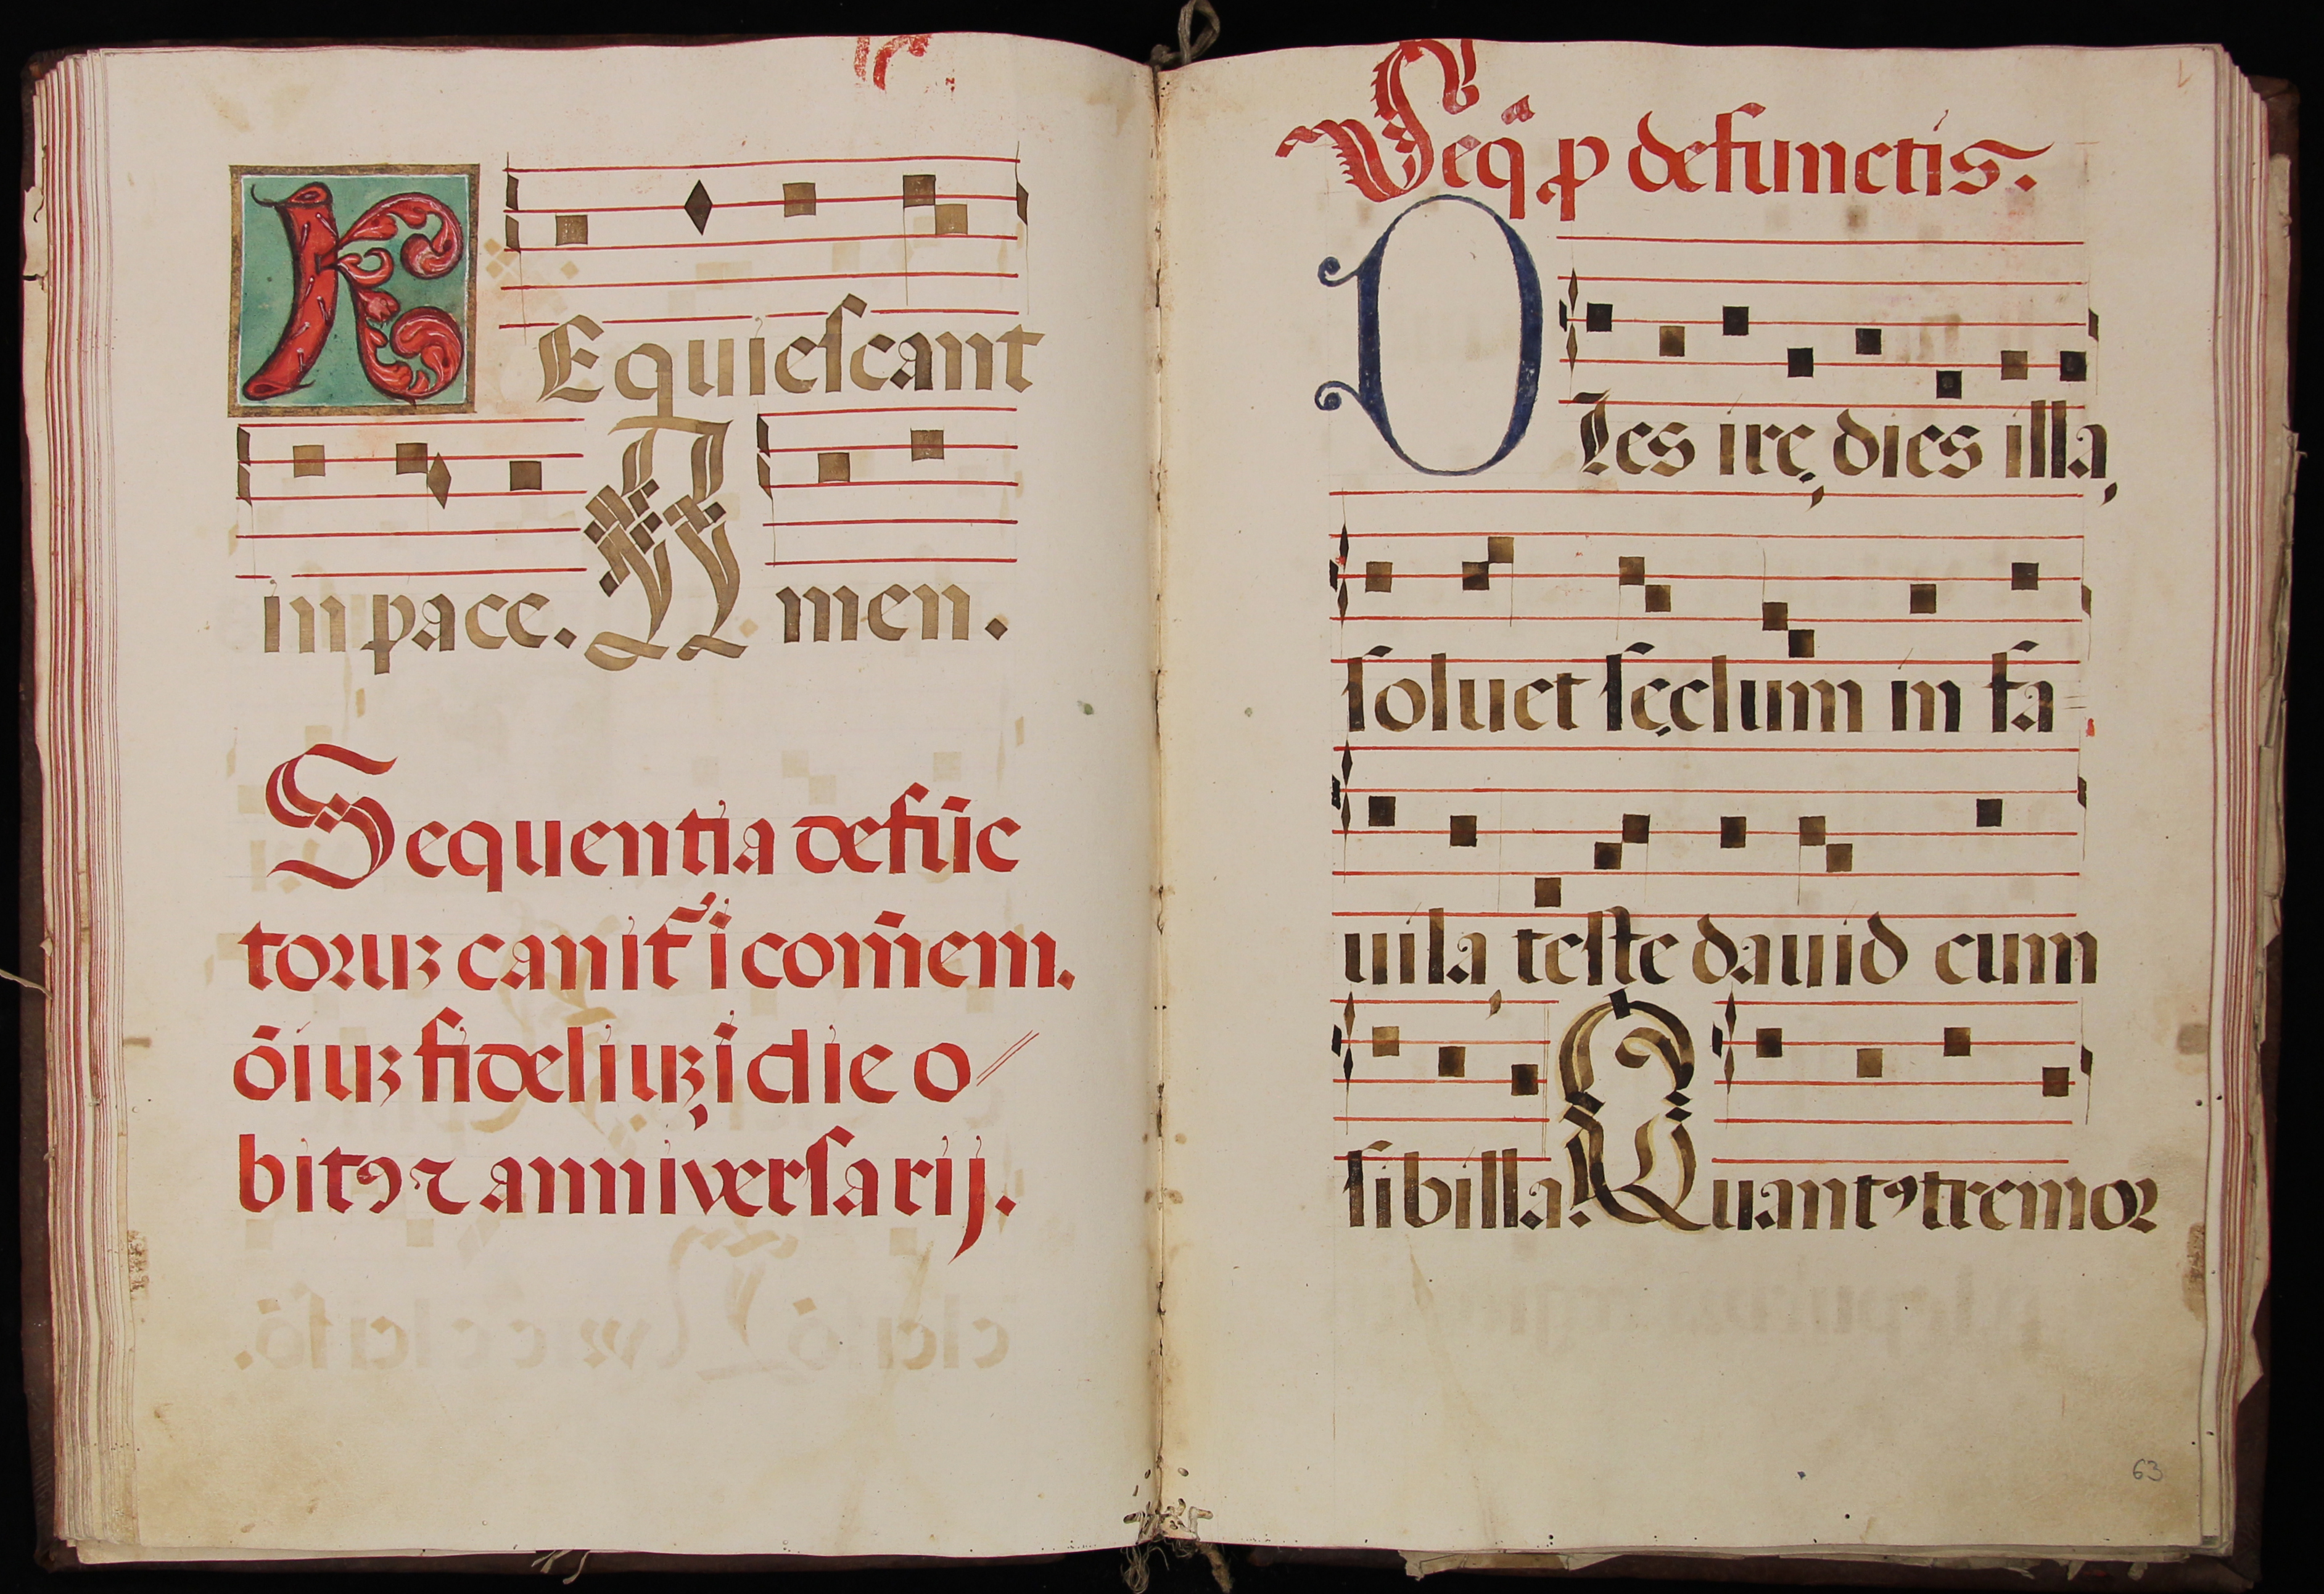 REquieſcant
in pace. Amen.
Sequentia defūc
toruꝫ canit᷑ ī com̄em.
ōiuꝫ fideliuꝫ, ī die o//
bitꝯ ⁊ anniverſarij.
Seq̄ ꝓ defunctis.
DIes irę, dies illa,
ſoluet ſęclum in fa=
uila, teſte dauid cum
ſibilla. Quantꝯ tremoꝛ
63